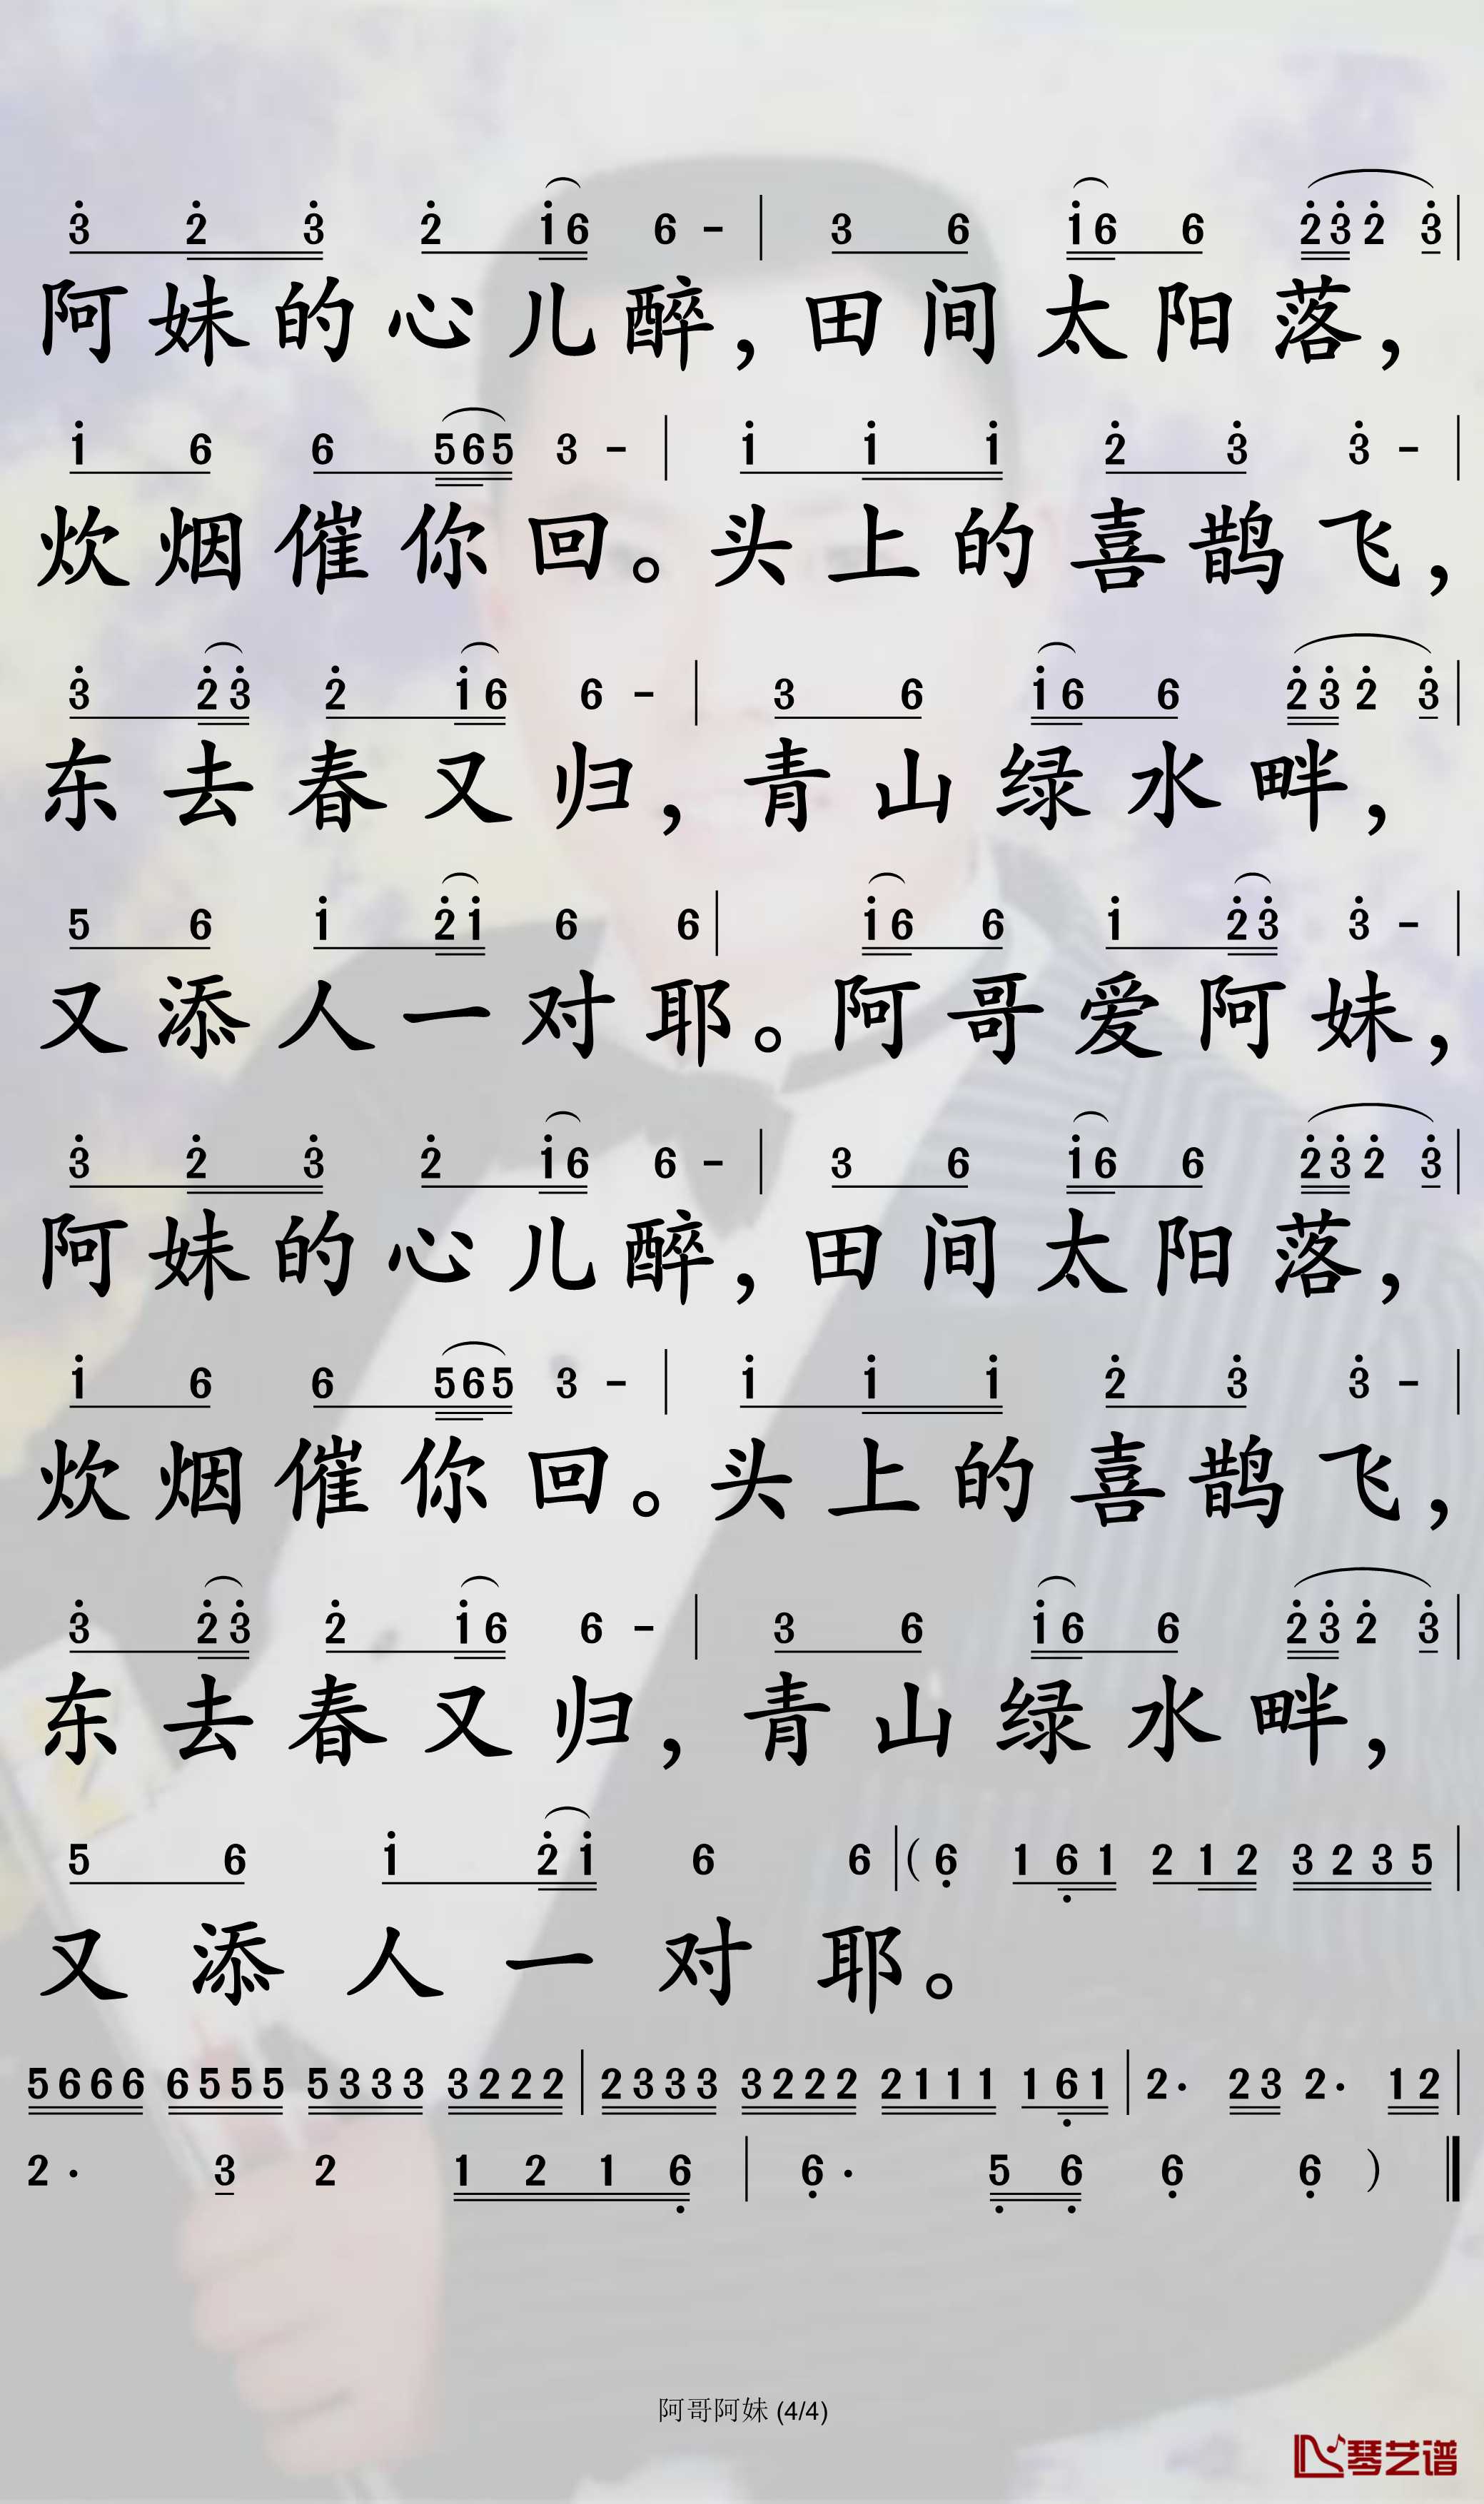 3̇ 2̇ 3̇ 2̇ 1̇6 6 - | 3 6 1̇6 6 2̇3̇2̇ 3̇ |
阿妹的心儿醉，田间太阳落，
1̇ 6 6 565 3 - | 1̇ 1̇ 1̇ 2̇ 3̇ 3̇ - |
炊烟催你回。头上的喜鹊飞，
3̇ 2̇3̇ 2̇ 1̇6 6 - | 3 6 1̇6 6 2̇3̇2̇ 3̇ |
东去春又归，青山绿水畔，
5 6 1̇ 2̇1̇ 6 6 | 1̇6 6 1̇ 2̇3̇ 3̇ - |
又添人一对耶。阿哥爱阿妹，
3̇ 2̇ 3̇ 2̇ 1̇6 6 - | 3 6 1̇6 6 2̇3̇2̇ 3̇ |
阿妹的心儿醉，田间太阳落，
1̇ 6 6 565 3 - | 1̇ 1̇ 1̇ 2̇ 3̇ 3̇ - |
炊烟催你回。头上的喜鹊飞，
3̇ 2̇3̇ 2̇ 1̇6 6 - | 3 6 1̇6 6 2̇3̇2̇ 3̇ |
东去春又归，青山绿水畔，
5 6 1̇ 2̇1̇ 6 6 | (6̣ 16̣1 212 3235 |
又添人一对耶。
5666 6555 5333 3222 | 2333 3222 2111 16̣1 | 2· 23 2· 12 |
2· 3 2 1216̣ | 6̣· 5̣6̣ 6̣ 6̣ ) ‖
阿哥阿妹 (4/4)
琴艺谱